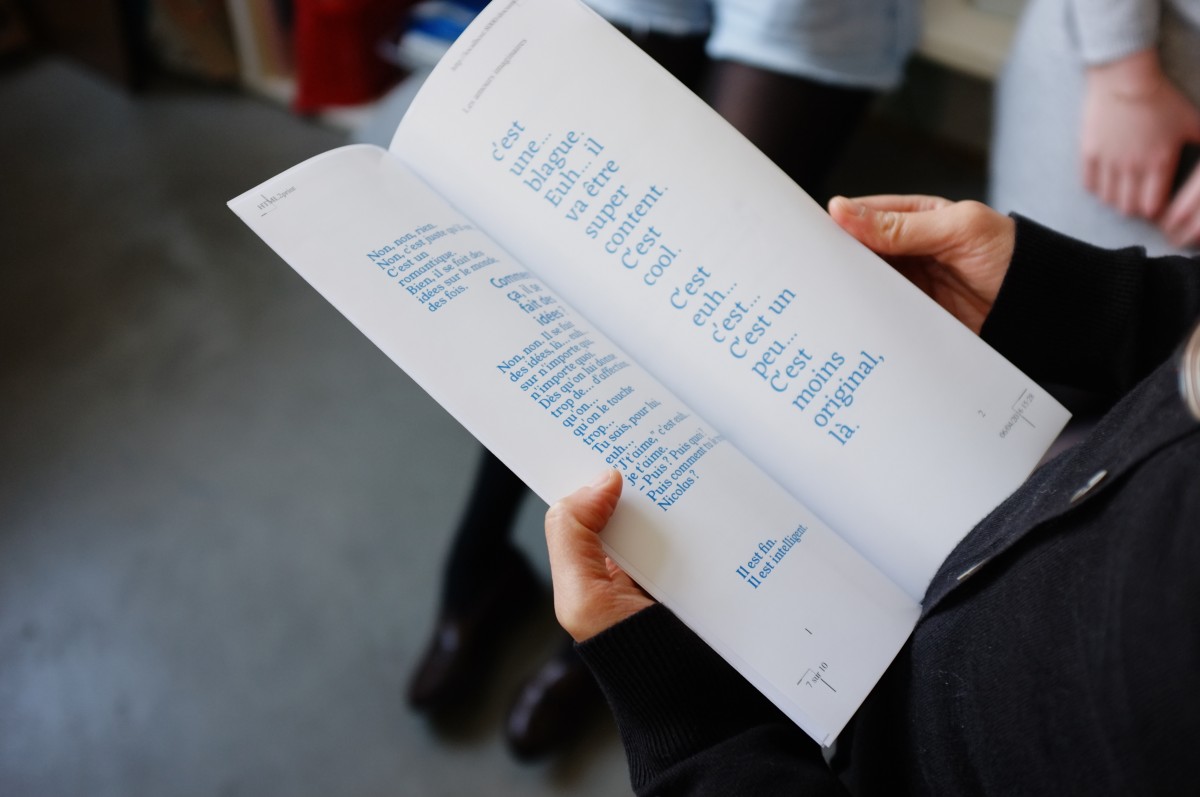 HTML2print
Non, non, rien.
Non, c'est juste qu'il
C'est un
romantique.
Bien, il se fait des
idées sur le monde,
des fois.
Comme
ça, il se
fait des
idées
Non, non. Il se fait
des idées, là... euh,
sur n'importe qui,
n'importe quoi.
Dès qu'on lui donne
trop de... d'affection,
qu'on...
qu'on le touche
trop...
Tu sais, pour lui,
euh...
"J't'aime," c'est euh,
je t'aime.
– Puis ? Puis quoi?
Puis comment tu
Nicolas ?
Il est fin.
Il est intelligent.
1
7 sur 10
Les amours imaginaires
c'est
une...
blague.
Euh... il
va être
super
content.
C'est
cool.
C'est
euh...
c'est...
C'est un
peu...
C'est
moins
original,
là.
2